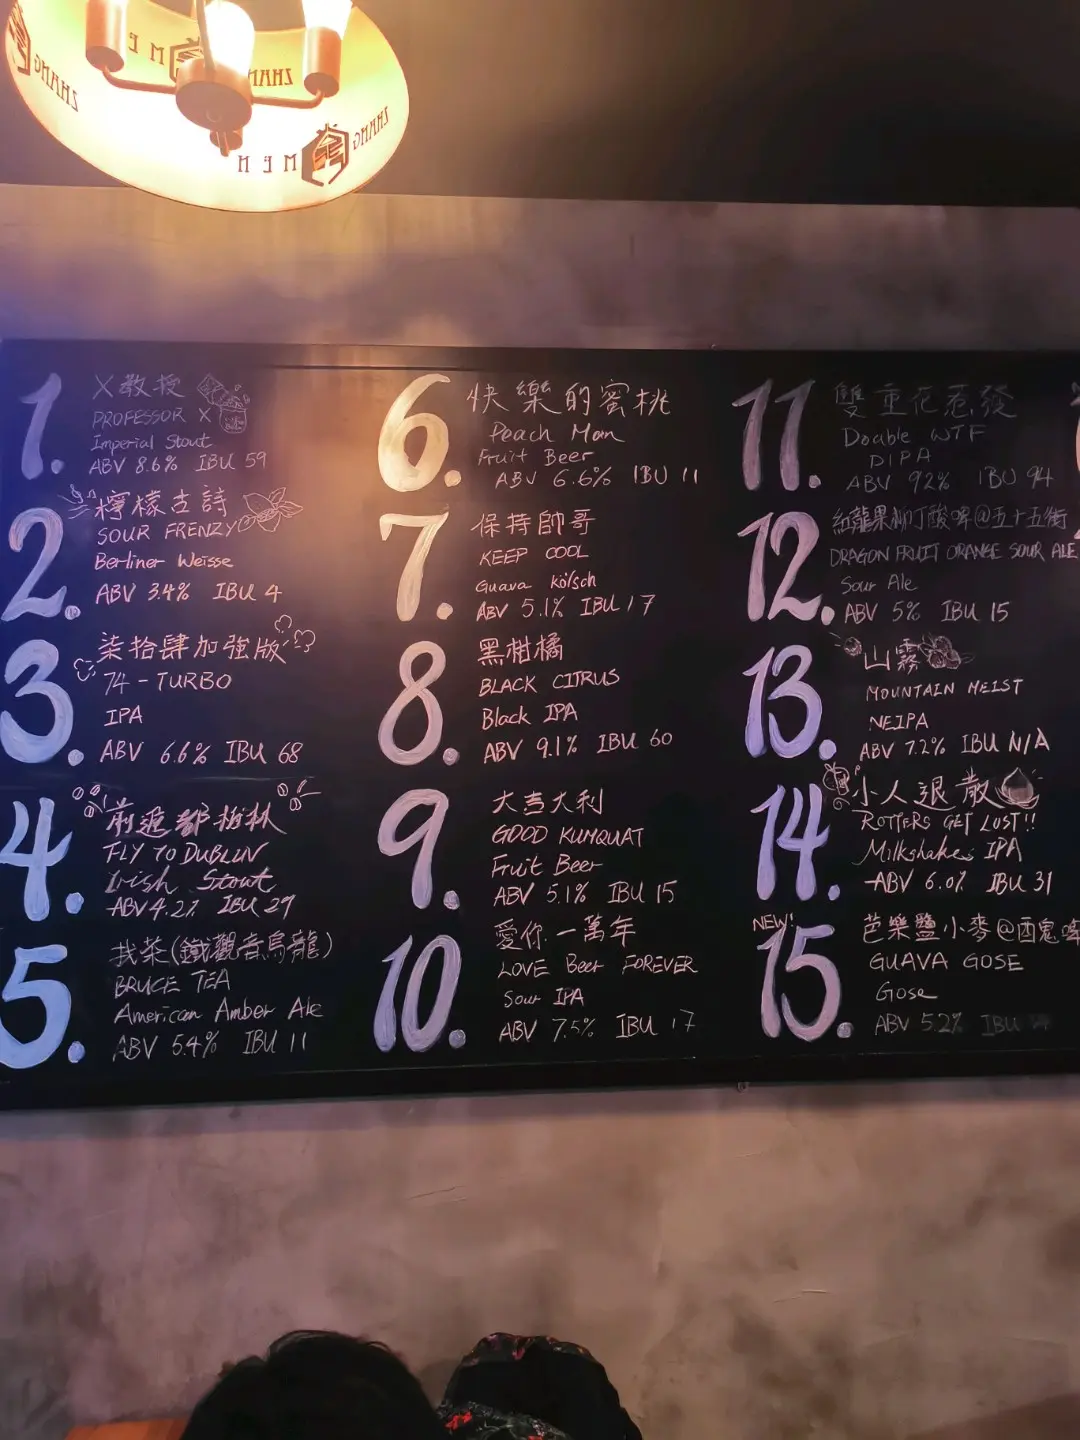 ZHANG MEN
ZHANG MEN
ZHANG
1.
X教授
PROFESSOR X
Imperial Stout
ABV 8.6% IBU 59
2.
檸檬古詩
SOUR FRENZY
Berliner Weisse
ABV 3.4% IBU 4
3.
柒拾肆加強版
74-TURBO
IPA
ABV 6.6% IBU 68
4.
前進都柏林
FLY TO DUBLIN
Irish Stout
ABV 4.2% IBU 29
5.
找茶(鐵觀音烏龍)
BRUCE TEA
American Amber Ale
ABV 5.4% IBU 11
6.
快樂的蜜桃
Peach Mom
Fruit Beer
ABV 6.6% IBU 11
7.
保持帥哥
KEEP COOL
Guava kölsch
ABV 5.1% IBU 17
8.
黑柑橘
BLACK CITRUS
Black IPA
ABV 9.1% IBU 60
9.
大吉大利
GOOD KUMQUAT
Fruit Beer
ABV 5.1% IBU 15
10.
愛你一萬年
LOVE Beer FOREVER
Sour IPA
ABV 7.5% IBU 17
11.
雙重花惹發
Double WTF
DIPA
ABV 92% IBU 94
12.
紅龍果柳丁酸啤@五十五街
DRAGON FRUIT ORANGE SOUR ALE
Sour Ale
ABV 5% IBU 15
13.
山霧
MOUNTAIN MEIST
NEIPA
ABV 7.2% IBU N/A
14.
小人退散
ROTTERS GET LOST!!
Milkshake IPA
ABV 6.0% IBU 31
NEW!
15.
芭樂鹽小麥@酉鬼啤
GUAVA GOSE
Gose
ABV 5.2% IBU